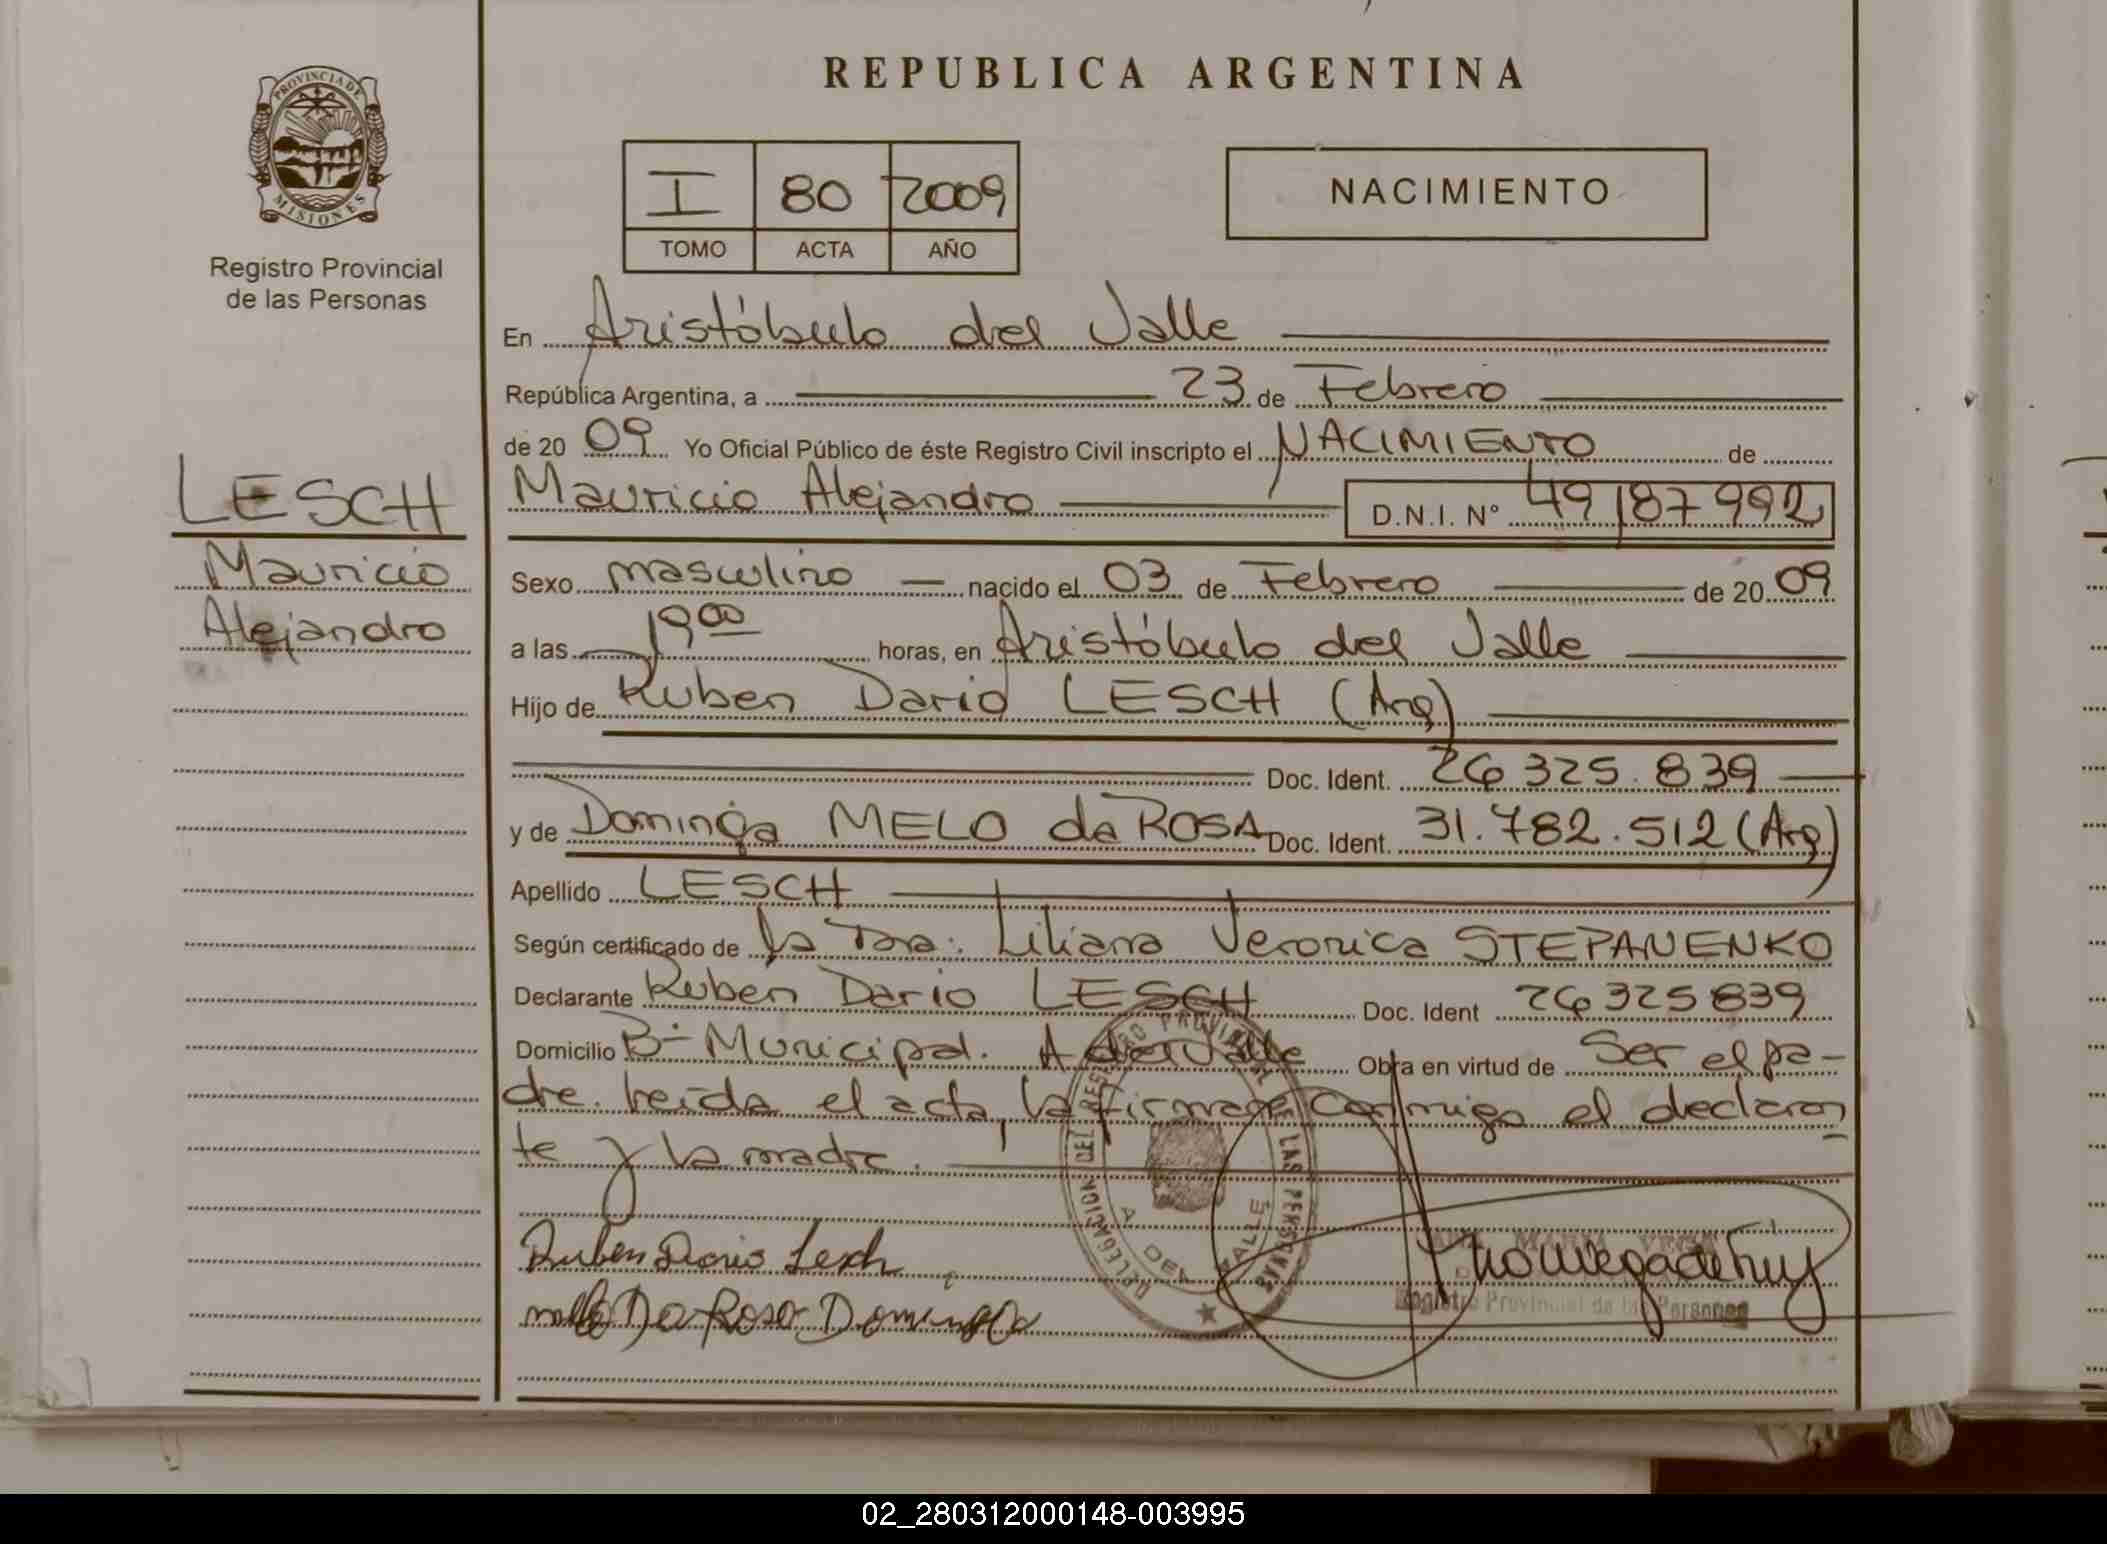 PROVINCIA DE
MISIONES
Registro Provincial
de las Personas
LESCH
Mauricio
Alejandro
REPUBLICA ARGENTINA
I 80 2009
TOMO ACTA AÑO
NACIMIENTO
En Aristóbulo del Valle
República Argentina, a 23 de Febrero
de 20 09 Yo Oficial Público de éste Registro Civil inscripto el NACIMIENTO de
Mauricio Alejandro D.N.I. N° 49187992
Sexo masculino nacido el 03 de Febrero de 20 09
a las 19 00 horas, en Aristóbulo del Valle
Hijo de Ruben Dario LESCH (Arg)
Doc. Ident. 26 325.839
y de Dominga MELO da ROSA Doc. Ident. 31.782.512 (Arg)
Apellido LESCH
Según certificado de la Dra. Liliana Veronica STEPANENKO
Declarante Ruben Dario LESCH Doc. Ident 26325839
Domicilio B- Municipal. A del Valle Obra en virtud de Ser el pa-
dre. Leída el acta, la firman conmigo el declaran
te y la madre.
DELEGACION DEL REGISTRO PROVINCIAL DE LAS PERSONAS
A DEL VALLE
Ruben Dario Lesch
Melo Da Rosa Dominga
Registro Provincial de las Personas
02_280312000148-003995